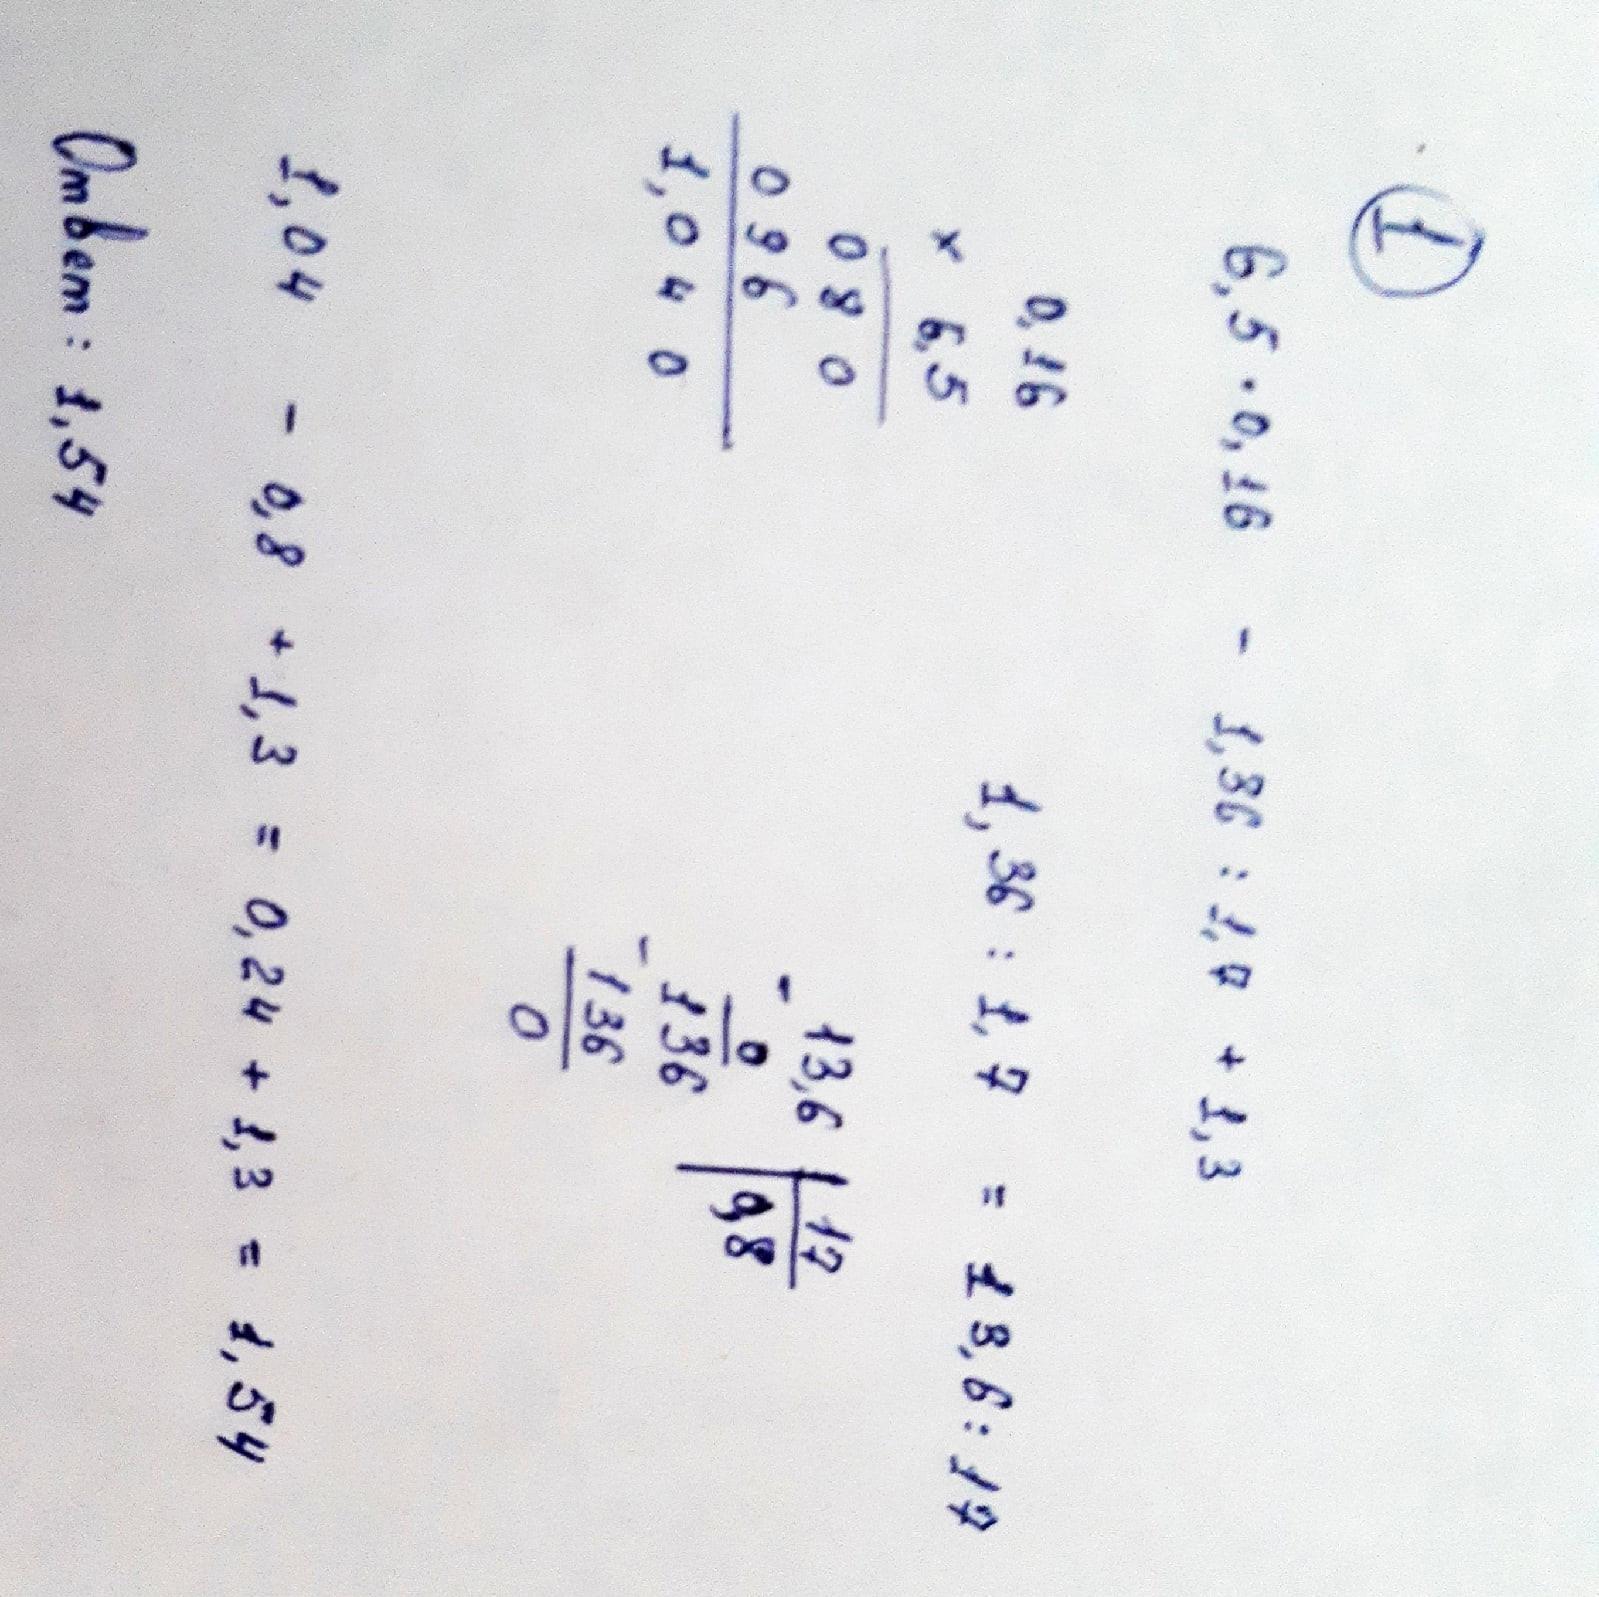 1
6,5 · 0,16 - 1,36 : 1,7 + 1,3
0,16
× 6,5
080
096
1,040
1,36 : 1,7 = 13,6 : 17
- 13,6 | 17
0 0,8
- 136
136
0
1,04 - 0,8 + 1,3 = 0,24 + 1,3 = 1,54
Ответ: 1,54